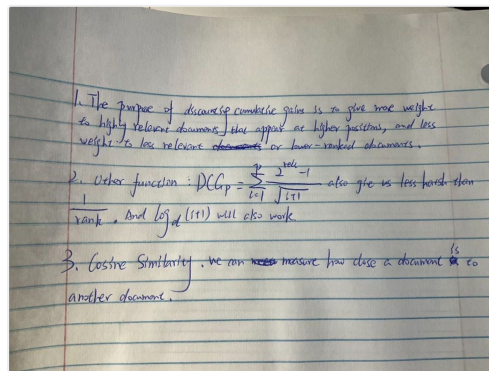 1. The purpose of discounting cumulative gains is to give more weight
to highly relevant documents that appear at higher positions, and less
weight to less relevant or lower-ranked documents.
2. Other function : DCG_p = \sum_{i=1}^{p} \frac{2^{rel_i} - 1}{\sqrt{i+1}} also give us less harsh than
\frac{1}{rank}. And log_d (i+1) will also work.
3. Cosine Similarity. we can measure how close a document is to
another document.